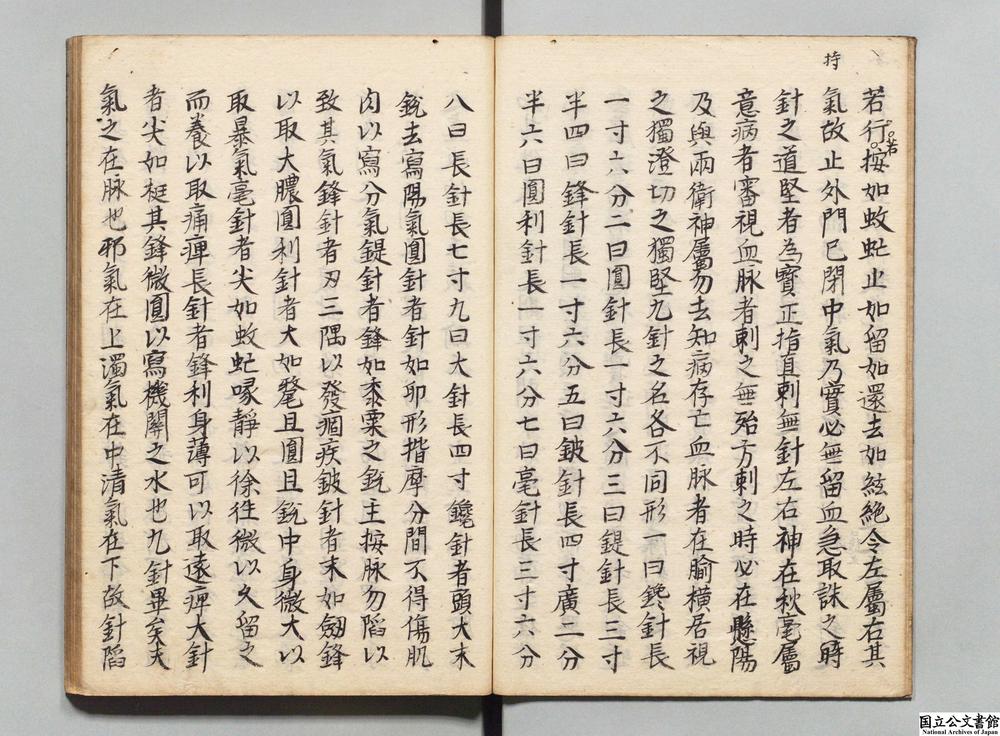 持
若行。若按如蚊虻止如留如還去如絃絶令左屬右其
氣故止外門已閉中氣乃實必無留血急取誅之時
針之道堅者為寳正指直刺無針左右神在秋毫屬
意病者審視血脉者刺之無殆方刺之時必在懸陽
及與兩衛神屬勿去知病存亡血脉者在腧横居視
之獨澄切之獨堅九針之名各不同形一曰鑱針長
一寸六分二曰圓針長一寸六分三曰鍉針長三寸
半四曰鋒針長一寸六分五曰鈹針長四寸廣二分
半六曰圓利針長一寸六分七曰毫針長三寸六分
八曰長針長七寸九曰大針長四寸鑱針者頭大末
銳去寫陽氣圓針者針如卵形揩摩分間不得傷肌
肉以寫分氣鍉針者鋒如黍粟之銳主按脉勿陷以
致其氣鋒針者刃三隅以發痼疾鈹針者末如劔鋒
以取大膿圓利針者大如氂且圓且銳中身微大以
取暴氣毫針者尖如蚊虻喙靜以徐徃微以久留之
而養以取痛痺長針者鋒利身薄可以取遠痺大針
者尖如梃其鋒微圓以寫機關之水也九針畢矣夫
氣之在脉也邪氣在上濁氣在中清氣在下故針陷
国立公文書館
National Archives of Japan